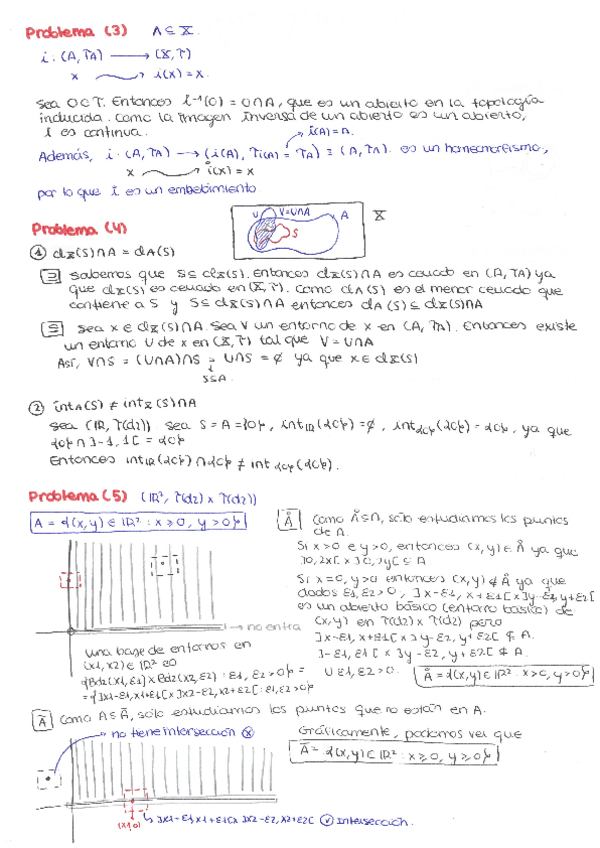 Problema (3) A ⊆ X.
i : (A, TA) → (X, T)
x ⟿ i(x) = x.
Sea O ∈ T. Entonces i⁻¹(O) = O∩A, que es un abierto en la topología
inducida. Como la imagen inversa de un abierto es un abierto,
i es continua.
i(A) = A.
Además, i : (A, TA) → (i(A), Ti(A) = TA) ≡ (A, TA). es un homeomorfismo,
x ⟿ i(x) = x
por lo que i es un embebimiento
Problema (4)
U V=U∩A A X
S
① clX(S)∩A = clA(S)
⊇ Sabemos que S ⊆ clX(S). Entonces clX(S)∩A es cerrado en (A, TA) ya
que clX(S) es cerrado en (X, T). Como clA(S) es el menor cerrado que
contiene a S y S ⊆ clX(S)∩A entonces clA(S) ⊆ clX(S)∩A
⊆ Sea x ∈ clX(S)∩A. Sea V un entorno de x en (A, TA). Entonces existe
un entorno U de x en (X, T) tal que V = U∩A
Así, V∩S = (U∩A)∩S = U∩S ≠ ∅ ya que x ∈ clX(S)
S⊆A.
② intA(S) ≠ intX(S)∩A
Sea (ℝ, T(d2)) sea S = A = {0}, intℝ({0}) = ∅, int{0}({0}) = {0}, ya que
{0} ∩ ]-1, 1[ = {0}
Entonces intℝ({0}) ∩ {0} ≠ int{0}({0}).
Problema (5) (ℝ², T(d2) x T(d2))
A = {(x,y) ∈ ℝ² : x ≥ 0, y > 0}
Å Como Å ⊆ A, sólo estudiamos los puntos
de A.
Si x>0 e y>0, entonces (x,y) ∈ Å ya que
]0, 2x[ x ]0, 2y[ ⊆ A
Si x=0, y>0 entonces (x,y) ∉ Å ya que
dados ε1, ε2 > 0, ]x-ε1, x+ε1[ x ]y-ε2, y+ε2[
es un abierto básico (entorno básico) de
(x,y) en T(d2) x T(d2) pero
]x-ε1, x+ε1[ x ]y-ε2, y+ε2[ ⊄ A.
]-ε1, ε1[ x ]y-ε2, y+ε2[ ⊄ A.
∀ ε1, ε2 > 0.
Å = {(x,y) ∈ ℝ² : x>0, y>0}
no entra
una base de entornos en
(x1, x2) ∈ ℝ² es
{Bd2(x1, ε1) x Bd2(x2, ε2) : ε1, ε2 > 0} =
= {]x1-ε1, x1+ε1[ x ]x2-ε2, x2+ε2[ : ε1, ε2 > 0}
Ā Como A ⊆ Ā, sólo estudiamos los puntos que no están en A.
no tiene intersección ⓧ
Gráficamente, podemos ver que
Ā = {(x,y) ∈ ℝ² : x ≥ 0, y ≥ 0}
(x1, 0)
]x1-ε1, x1+ε1[ x ]x2-ε2, x2+ε2[ ⓥ intersección.